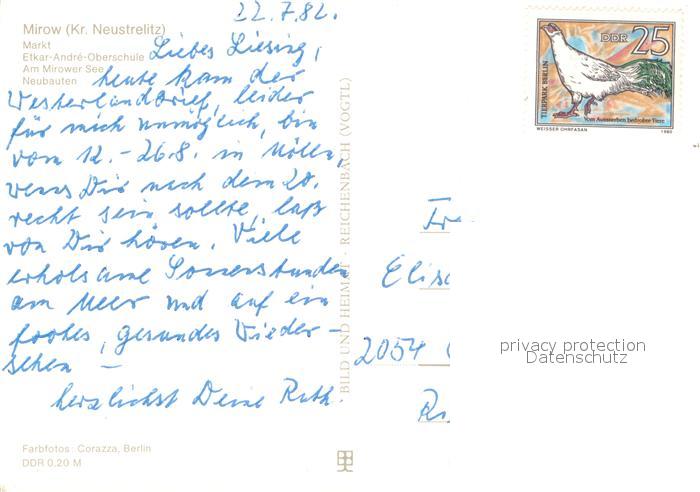 22.7.82.
Mirow (Kr. Neustrelitz)
Markt
Etkar-André-Oberschule
Am Mirower See
Neubauten
Liebes Liesing,
heute kam der
Westerlandbrief, leider
für mich unmöglich, bin
vom 12.-26.8. in Mölln,
wenns Dir nach dem 20.
recht sein sollte, laß
von Dir hören. Viele
erholsame Sonnenstunden
am Meer und auf ein
frohes, gesundes Wieder-
sehen –
herzlichst Deine Ruth.
Farbfotos: Corazza, Berlin
DDR 0,20 M
BILD UND HEIMAT · REICHENBACH (VOGTL)
DDR 25
TIERPARK BERLIN
Vom Aussterben bedrohte Tiere
WEISSER OHRFASAN 1980
Fr
Elis
2054
privacy protection
Datenschutz